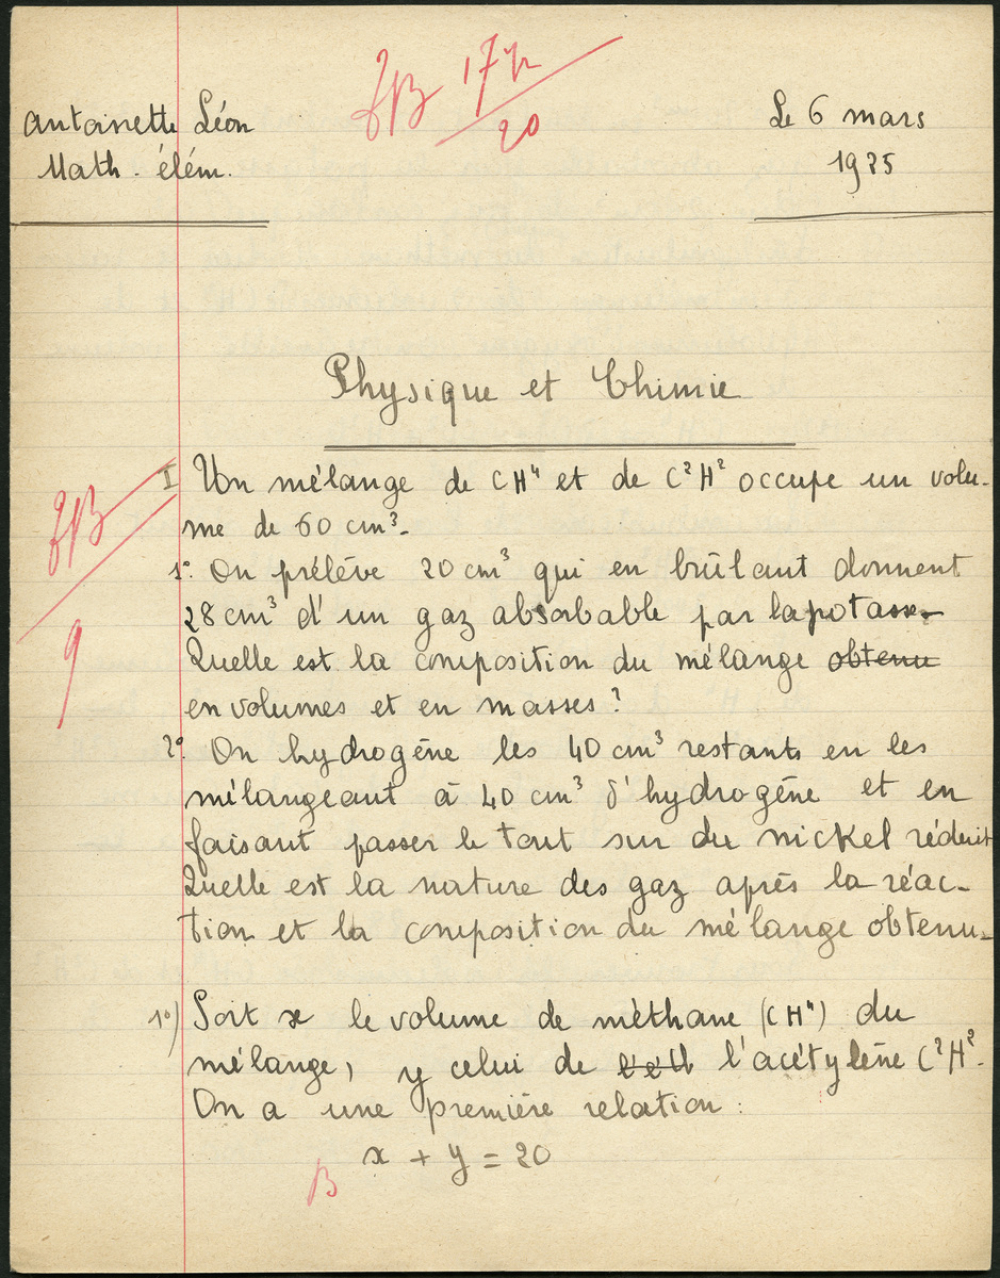 TB 17 1/2
20
Antoinette Léon
Le 6 mars
Math. élém.
1935
Physique et Chimie
TB
9
I Un mélange de CH⁴ et de C²H² occupe un volu-
me de 60 cm³.
1º. On prélève 20 cm³ qui en brûlant donnent
28 cm³ d'un gaz absorbable par la potasse.
Quelle est la composition du mélange obtenu
en volumes et en masses ?
2º. On hydrogène les 40 cm³ restants en les
mélangeant à 40 cm³ d'hydrogène et en
faisant passer le tout sur du nickel réduit
Quelle est la nature des gaz après la réac-
tion et la composition du mélange obtenu.
1º) Soit x le volume de méthane (CH⁴) du
mélange, y celui de l'acétylène C²H².
On a une première relation :
x + y = 20
B